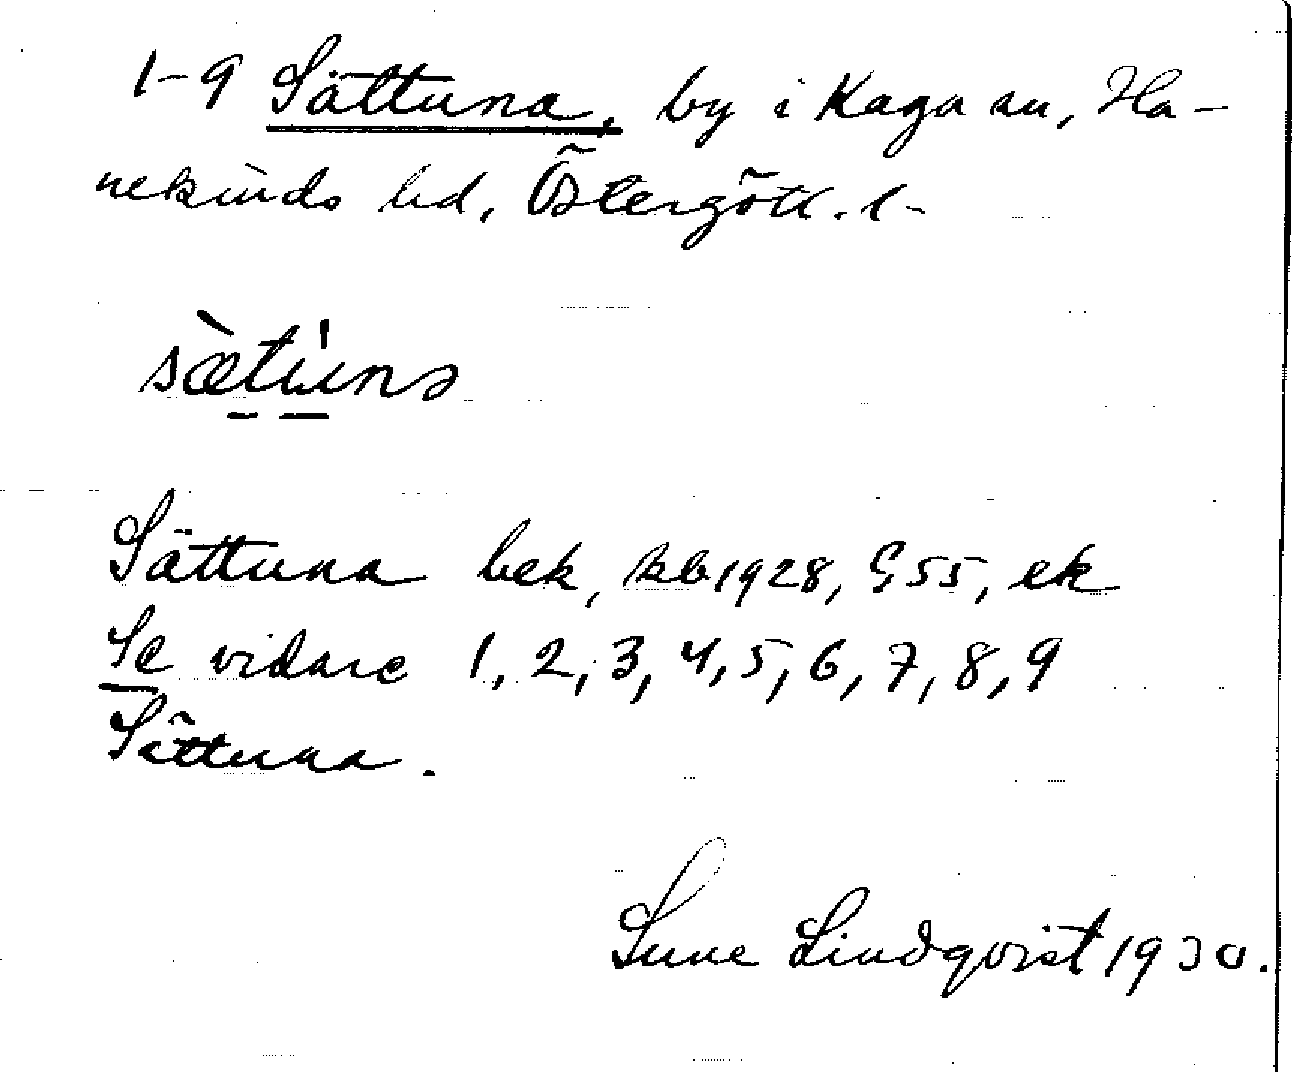 1-9 Sättuna, by i Kaga sn, Ha-
nekinds hd, Östergötl. l-
sæ̀tu̍nɔ
Sättuna bek, kb1928, G55, ek
Se vidare 1, 2, 3, 4, 5, 6, 7, 8, 9
Sättuna.
Sune Lindqvist 1930.